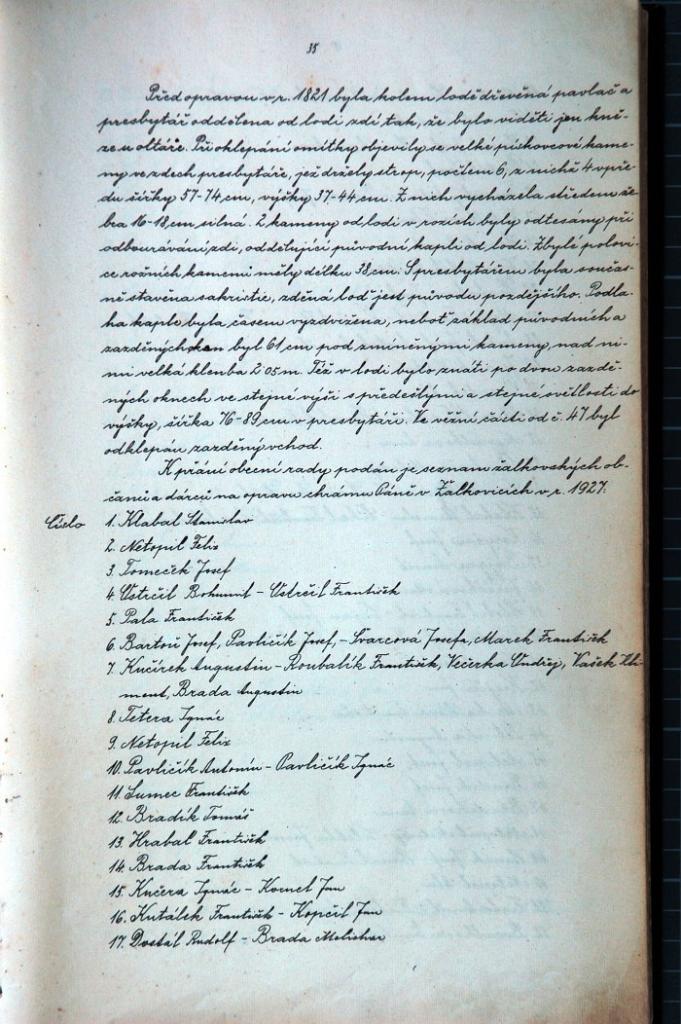 35
Před opravou v r. 1821 byla kolem lodě dřevěná pavlač a
presbytář oddělena od lodi zdí tak, že bylo viděti jen kně-
ze u oltáře. Při oklepání omítky objevily se velké pískovcové kame-
ny ve zdech presbytáře, jež držely strop, počtem 6, z nichž 4 vpře-
du šířky 57-74 cm, výšky 37-44 cm. Z nich vycházela středem že-
bra 16-18 cm silná. 2 kameny od lodi v rozích byly odtesány při
odbourávání zdi, oddělující původní kapli od lodi. Zbylé polovi-
ce rožních kamenů měly délku 38 cm. S presbytářem byla součas-
ně stavěna sakristie, zděná loď jest původu pozdějšího. Podla-
ha kaple byla časem vyzdvižena, neboť základ původních a
zazděných oken byl 61 cm pod zmíněnými kameny, nad ni-
mi velká klenba 2·05 m. Též v lodi bylo znáti po dvou zazdě-
ných oknech ve stejné výši s předešlými a stejné světlosti do
výšky, šířka 76-89 cm v presbytáři. Ve věžní části od č. 47 byl
odklepán zazděný vchod.
K přání obecní rady podán je seznam žalkovských ob-
čanů a dárců na opravu chrámu Páně v Žalkovicích v r. 1927:
Číslo 1. Klabal Stanislav
2. Netopil Felix
3. Tomeček Josef
4. Ústrčil Bohumil - Ústrčil František
5. Pala František
6. Bartoň Josef, Pavličík Josef, - Švarcová Josefa, Marek František
7. Kučírek Augustin - Roubalík František, Večerka Ondřej, Vašek Kli-
ment, Brada Augustin
8. Tetera Ignác
9. Netopil Felix
10. Pavličík Antonín - Pavličík Ignác
11. Šumec František
12. Bradík Tomáš
13. Hrabal František
14. Brada František
15. Kučera Ignác - Kornel Jan
16. Kutálek František - Kopčil Jan
17. Dostál Rudolf - Brada Melichar